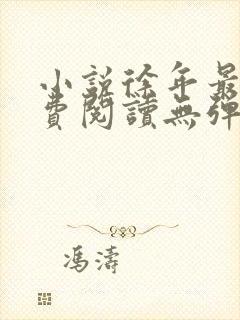 小說徐年最
費閱讀無彈
馮濤